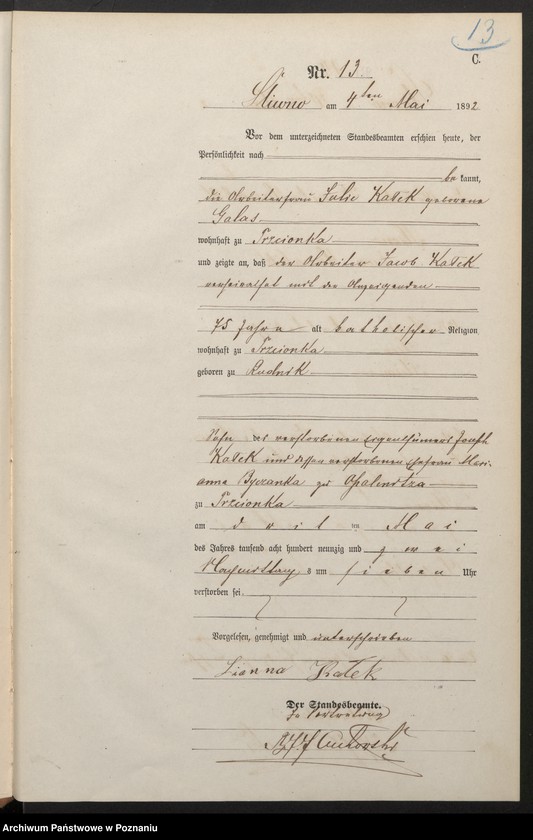 13
C.
Nr. 13.
Sliwno am 4ten Mai 1892
Vor dem unterzeichneten Standesbeamten erschien heute, der
Persönlichkeit nach
be kannt,
die Arbeiterfrau Julie Kałek geborene
Galas
wohnhaft zu Trzcionka
und zeigte an, daß der Arbeiter Jacob Kałek
verheirathet mit der Anzeigenden
75 Jahre alt katholischer Religion
wohnhaft zu Trzcionka
geboren zu Rudnik
Sohn des verstorbenen Eigenthümers Joseph
Kałek und dessen verstorbenen Ehefrau Mari-
anna zu Opalenitza
zu Trzcionka
am drit en Mai
des Jahres tausend acht hundert neunzig und zwei
Nachmittag s um sieben Uhr
verstorben sei.
Vorgelesen, genehmigt und unterschrieben
Kałek
Der Standesbeamte.
In Vertretung
Archiwum Państwowe w Poznaniu